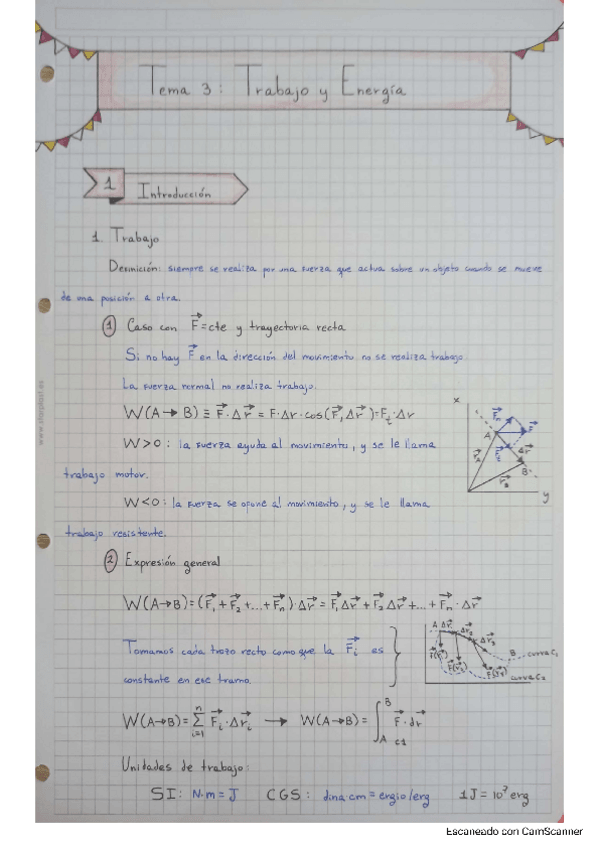 Tema 3: Trabajo y Energía
1 Introducción
1. Trabajo
Definición: siempre se realiza por una fuerza que actua sobre un objeto cuando se mueve
de una posición a otra.
① Caso con F⃗=cte y trayectoria recta
Si no hay F⃗ en la dirección del movimiento no se realiza trabajo.
La fuerza normal no realiza trabajo.
W(A→B) ≡ F⃗·Δr⃗ = F·Δr·cos(F⃗,Δr⃗)=Fₜ·Δr
W>0: la fuerza ayuda al movimiento, y se le llama
trabajo motor.
W<0: la fuerza se opone al movimiento, y se le llama
trabajo resistente.
x
A
F⃗
Δr⃗
B
y
② Expresión general
W(A→B)=(F⃗₁+F⃗₂+...+F⃗ₙ)·Δr⃗ = F⃗₁Δr⃗ + F⃗₂Δr⃗ +...+ F⃗ₙ·Δr⃗
Tomamos cada trozo recto como que la F⃗ᵢ es
constante en ese tramo.
A Δr⃗₁ Δr⃗₂ Δr⃗₃
B curva C₁
curva C₂
W(A→B)= Σ F⃗ᵢ·Δr⃗ᵢ → W(A→B)= ∫ F⃗·dr⃗
n i=1 B A C1
Unidades de trabajo:
SI: N·m=J CGS: dina·cm=ergio/erg 1J=10⁷ erg
www.starplast.es
Escaneado con CamScanner